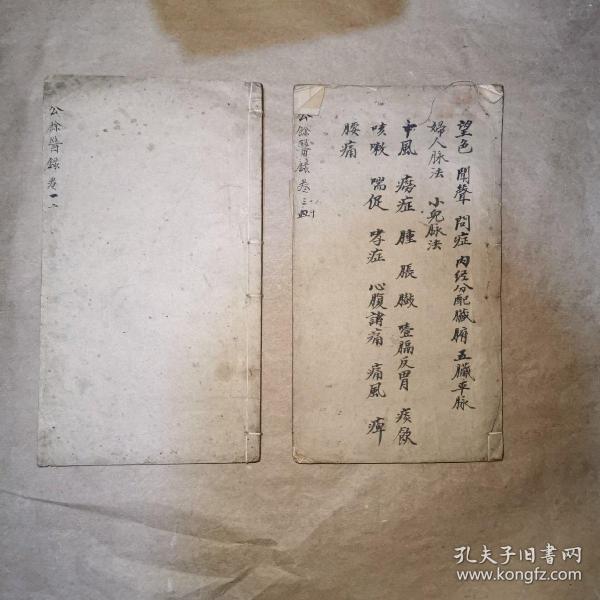 公餘醫錄卷一二
公餘醫錄卷三四
望色 聞聲 問症 內经分配臟腑 五臟平脉
婦人脉法 小兒脉法
中風 痨症 腫 脹 臌 噎膈反胃 痰飲
咳嗽 喘促 哮症 心腹諸痛 痛風 痺
腰痛
孔夫子旧书网
www.kongfz.com